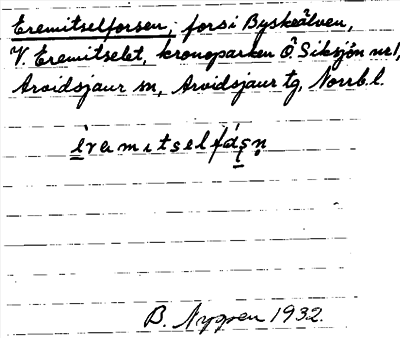 Eremitselforsen, fors i Byskeälven,
V. Eremitselet, kronoparken Ö. Siksjön nr 1,
Arvidsjaur sn, Arvidsjaur tg, Norrb. l.
B. Nygren 1932.